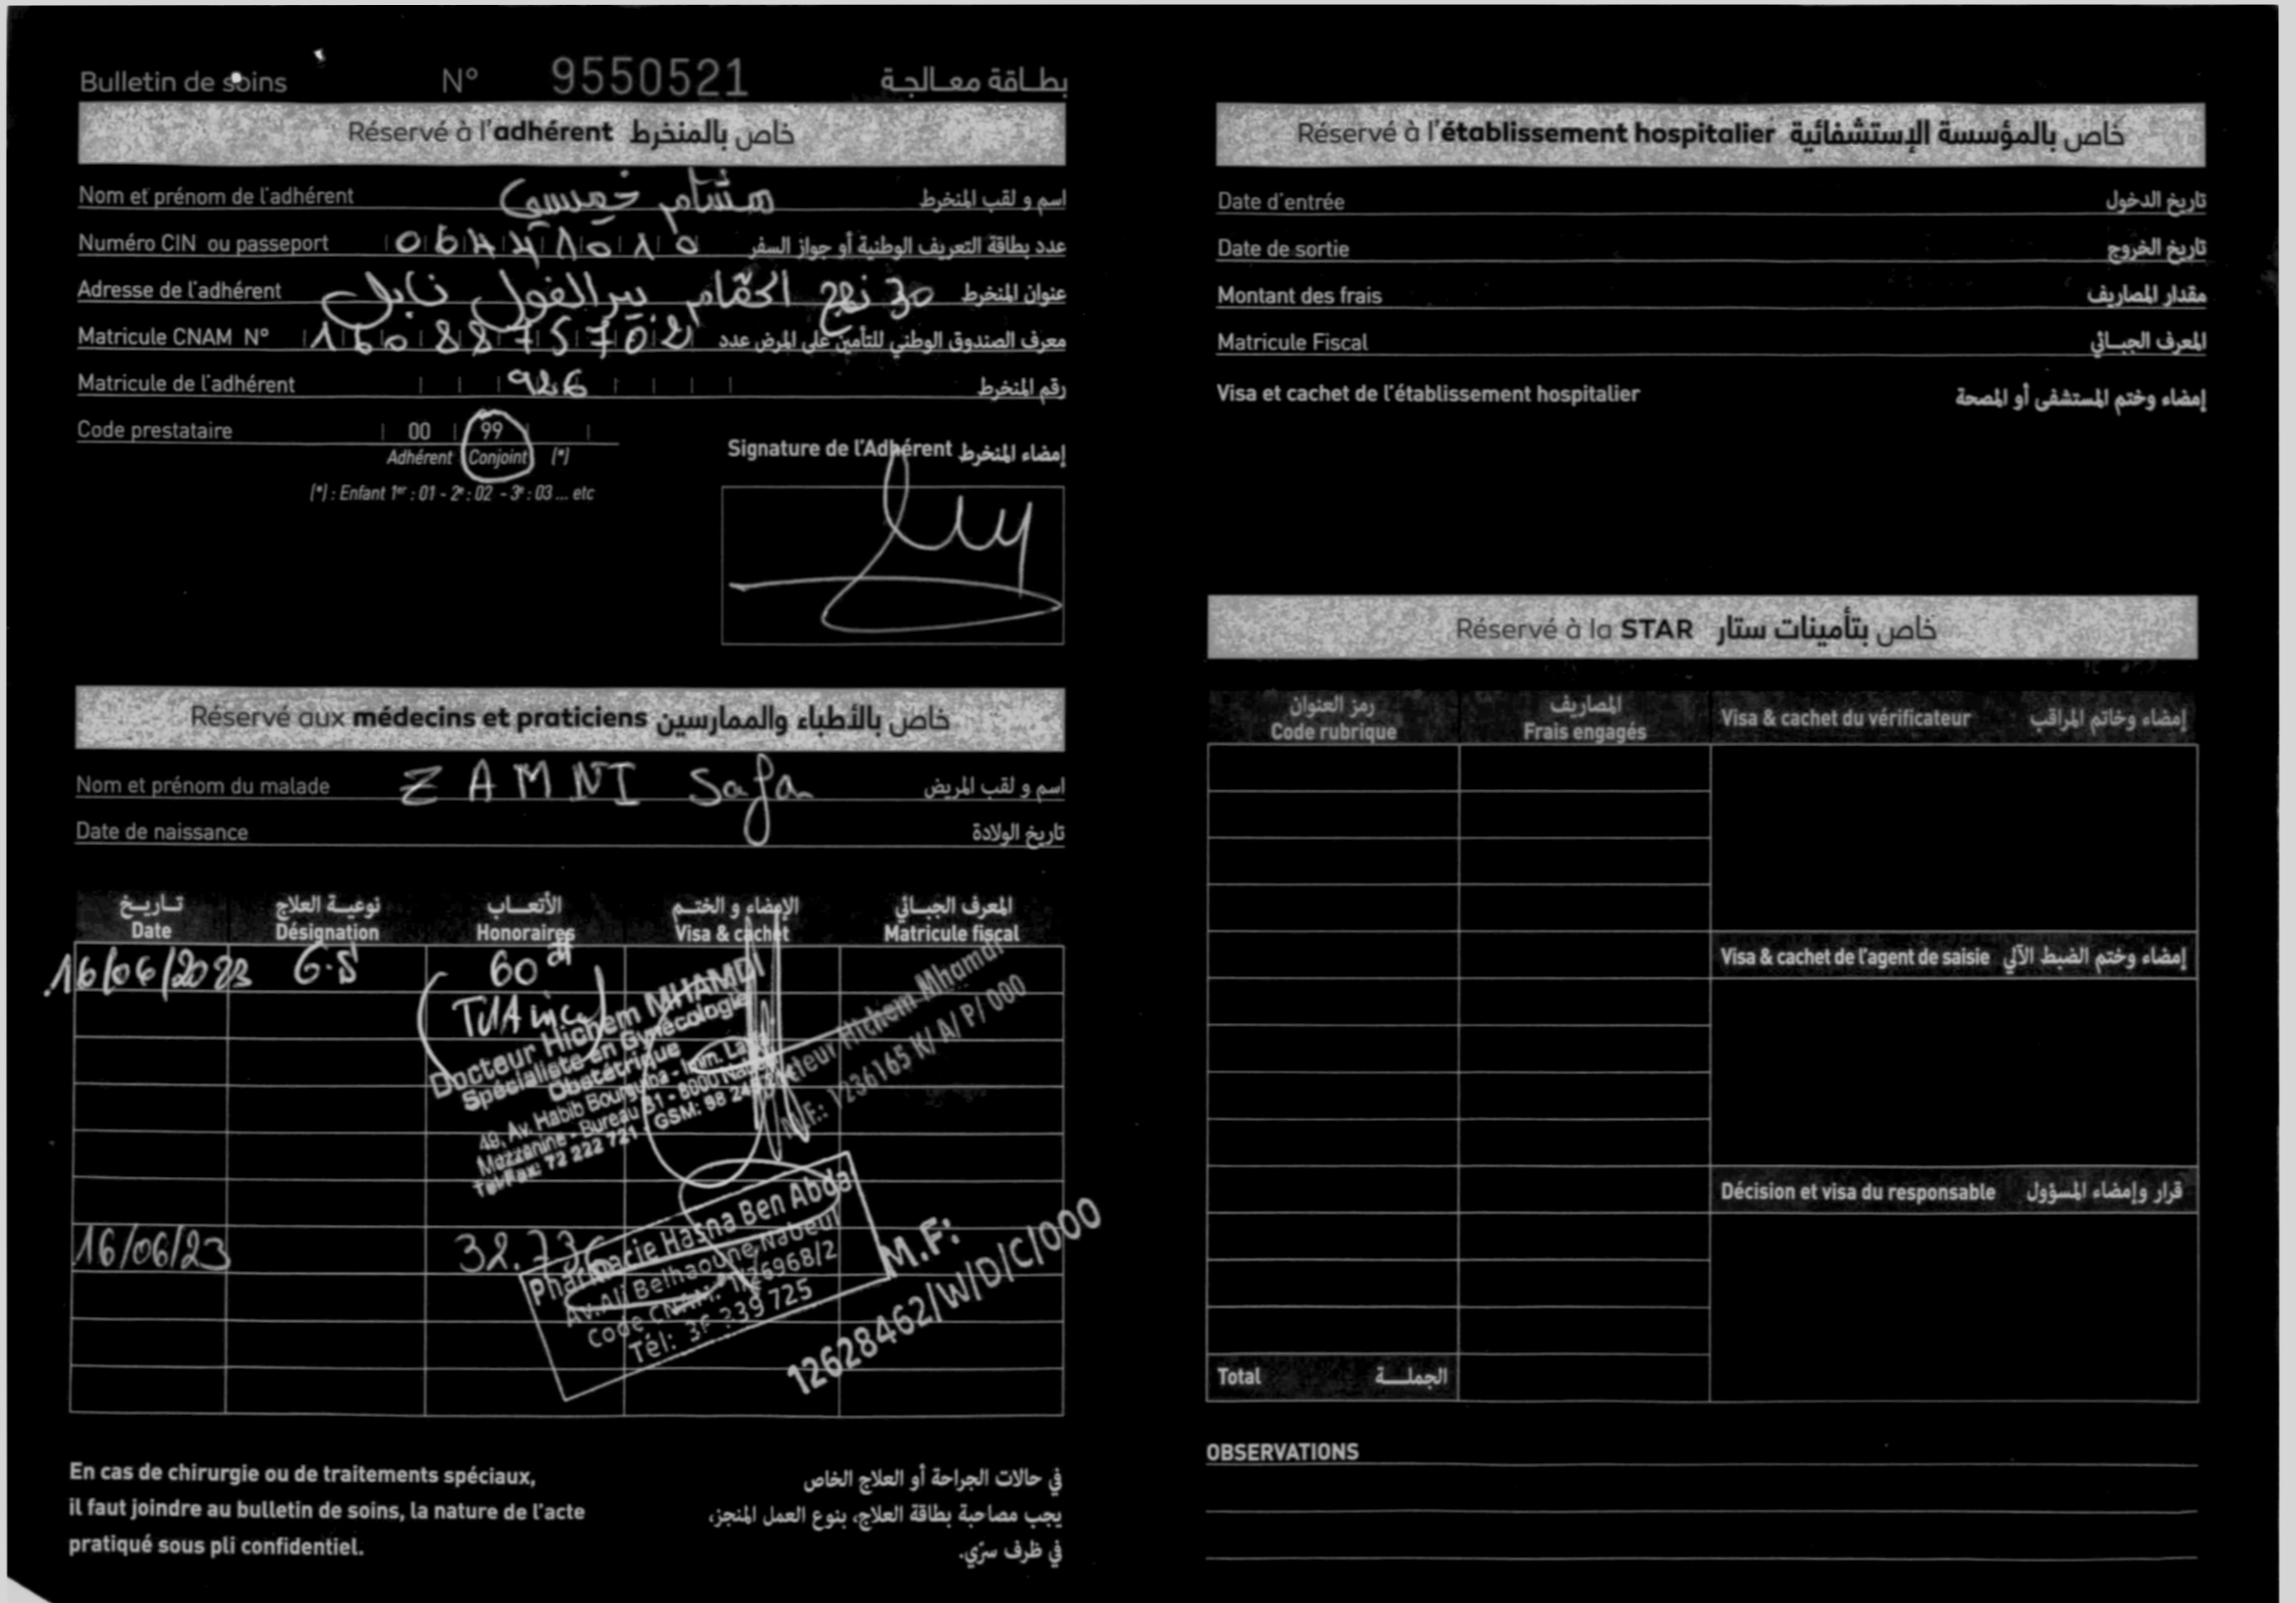 Bulletin de soins N° 9550521 بطاقة معالجة
Réservé à l'adhérent خاص بالمنخرط
Nom et prénom de l'adhérent هشام خميسي اسم و لقب المنخرط
Numéro CIN ou passeport عدد بطاقة التعريف الوطنية أو جواز السفر
Adresse de l'adhérent 30 نهج الحمّام بير الغول نابل عنوان المنخرط
Matricule CNAM N° معرف الصندوق الوطني للتأمين على المرض عدد
Matricule de l'adhérent 926 رقم المنخرط
Code prestataire 00 99
Adhérent Conjoint (*)
(*) : Enfant 1er : 01 - 2e : 02 - 3e : 03 ... etc
Signature de l'Adhérent إمضاء المنخرط
Réservé aux médecins et praticiens خاص بالأطباء والممارسين
Nom et prénom du malade ZAMNI Safa اسم و لقب المريض
Date de naissance تاريخ الولادة
تاريخ نوعية العلاج الأتعاب الإمضاء و الختم المعرف الجبائي
Date Désignation Honoraires Visa & cachet Matricule fiscal
16/06/2023 G.S 60 dt
Docteur Hichem MHAMDI
Spécialiste en Gynécologie
Obstétrique
49, Av. Habib Bourguiba - Imm.
Mezzanine - Bureau 31 - 8000
Tel/Fax: 72 222 721 - GSM: 98
Docteur Hichem Mhamdi
M.F.: 1236165 K/ A/ P/ 000
16/06/23 32.736
Pharmacie Hasna Ben Abda
Av. Ali Belhaoune Nabeul
Code CNAM: 1/26968/2
Tél: 239 725
M.F:
12628462/W/D/C/000
En cas de chirurgie ou de traitements spéciaux,
il faut joindre au bulletin de soins, la nature de l'acte
pratiqué sous pli confidentiel.
في حالات الجراحة أو العلاج الخاص
يجب مصاحبة بطاقة العلاج، بنوع العمل المنجز،
في ظرف سرّي.
Réservé à l'établissement hospitalier خاص بالمؤسسة الإستشفائية
Date d'entrée تاريخ الدخول
Date de sortie تاريخ الخروج
Montant des frais مقدار المصاريف
Matricule Fiscal المعرف الجبائي
Visa et cachet de l'établissement hospitalier إمضاء وختم المستشفى أو المصحة
Réservé à la STAR خاص بتأمينات ستار
رمز العنوان المصاريف
Code rubrique Frais engagés Visa & cachet du vérificateur إمضاء وخاتم المراقب
Visa & cachet de l'agent de saisie إمضاء وختم الضبط الآلي
Décision et visa du responsable قرار وإمضاء المسؤول
Total الجملة
OBSERVATIONS